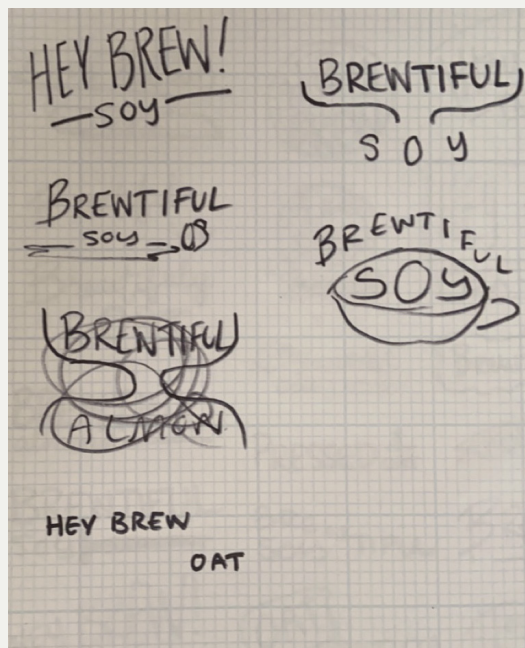 HEY BREW!
SOY
BREWTIFUL
SOY
BREWTIFUL
ALMON
HEY BREW
OAT
BREWTIFUL
SOY
BREWTIFUL
SOY